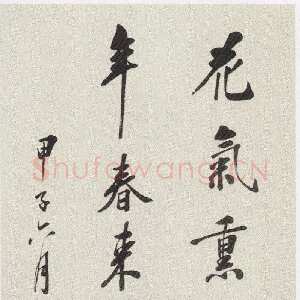 花氣熏
年春来
甲子六月
Shufawang.CN